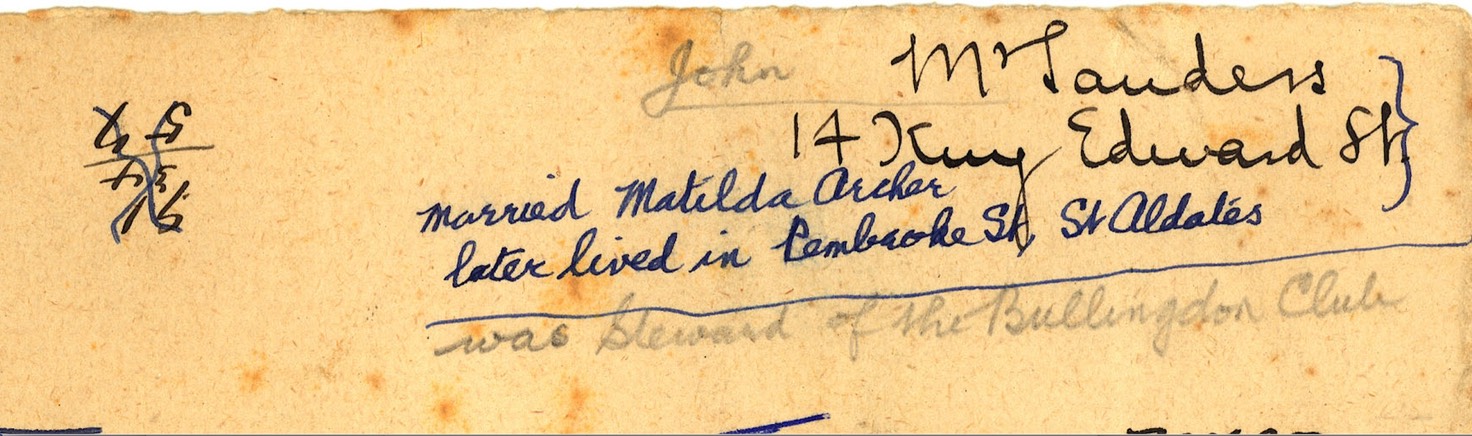 John Mr Sanders
14 King Edward St.
married Matilda Archer
later lived in Pembroke St, St Aldates
was Steward of the Bullingdon Club